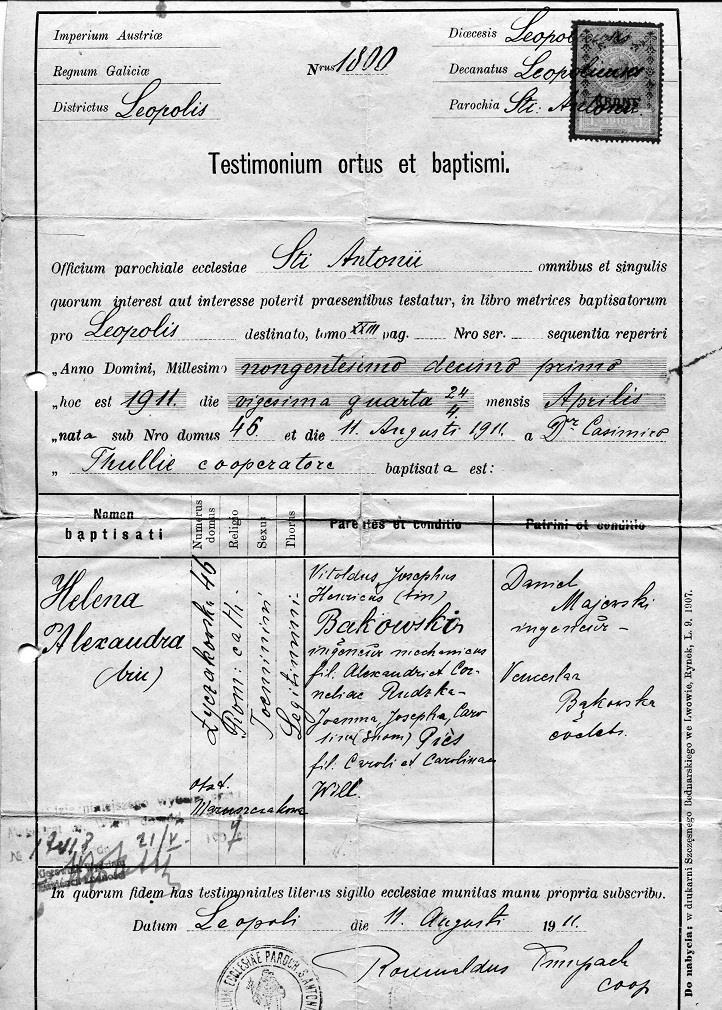 Imperium Austriæ
Regnum Galiciæ
Districtus Leopolis
Nrus 1800
Dioecesis Leopoliensis
Decanatus Leopoliensis
Parochia Sti. Antonii
1910
Testimonium ortus et baptismi.
Officium parochiale ecclesiae Sti Antonii omnibus et singulis
quorum interest aut interesse poterit praesentibus testatur, in libro metrices baptisatorum
pro Leopolis destinato, tomo XXIII pag. Nro ser. sequentia reperiri
„Anno Domini, Millesimo nongentesimo decimo primo
„hoc est 1911. die vigesima quarta 24/4 mensis Aprilis
„nata sub Nro domus 46. et die 11. Augusti 1911. a Dr. Casimiro
„ Thullie cooperatore baptisata est:
Nomen baptisati
Numerus domus
Religio
Sexus
Thorus
Parentes et conditio
Patrini et conditio
Helena
Alexandra
(bin)
Łyczakowska 46
Rom: cath.
Foeminini
Legitimi
obst.
Maruszczakowa
Vitoldus Josephus
Henricus (trin)
Bąkowski
ingeneur mechanicus
fil. Alexandri et Cor-
neliae Rudzka-
Joanna, Josepha, Caro
lina Piès
fil. Caroli et Carolinae
Will.
Daniel
Majewski
ingeneur -
Venceslaa
Bąkowska
coelebs.
21/V
In quorum fidem has testimoniales literas sigillo ecclesiae munitas manu propria subscribo.
Datum Leopoli die 11. Augusti 1911.
Romualdus
coop
ECCLESIAE PAROCH. S. ANTONII
Do nabycia: w drukarni Szczęsnego Bednarskiego we Lwowie, Rynek, L. 9. 1907.